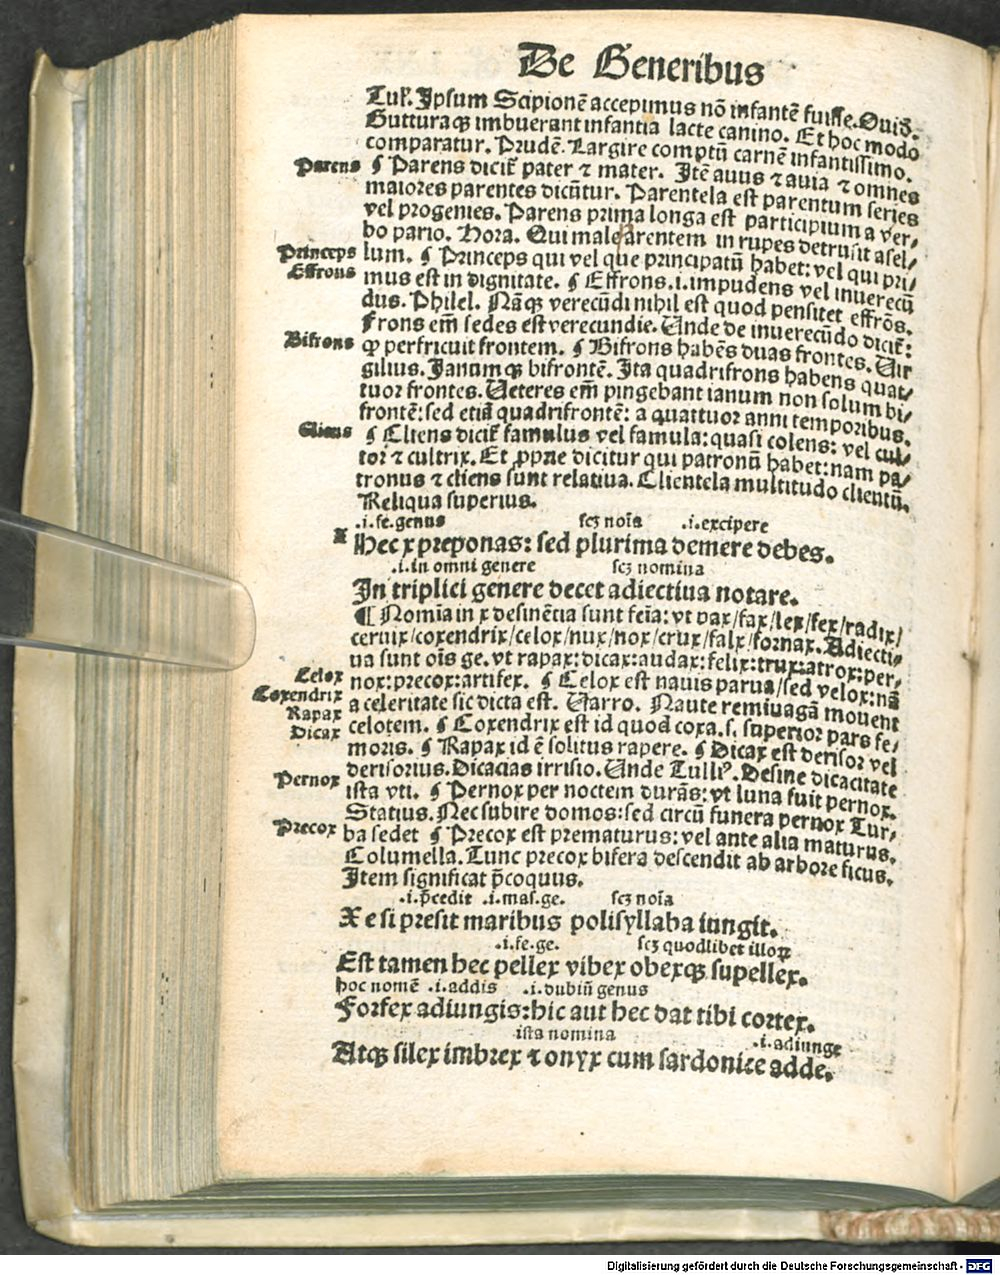 De Generibus
Tul̃. Ipsum Scipionē accepimus nō infantē fuisse. Ouid.
Gutturaqꝫ imbuerant infantia lacte canino. Et hoc modo
comparatur. Prudē. Largire comptū carnē infantissimo.
Parens ¶ Parens dicit̃ pater ⁊ mater. Itē auus ⁊ auia ⁊ omnes
maiores parentes dicūtur. Parentela est parentum series
vel progenies. Parens prima longa est participium a ver/
bo pario. Hora. Qui male parentem in rupes detrusit asel/
Princeps lum. ¶ Princeps qui vel que principatū habet: vel qui pri/
Effrons mus est in dignitate. ¶ Effrons .i. impudens vel inuerecū
dus. Philel. Nāqꝫ verecūdi nihil est quod pensitet effrōs.
Frons em̄ sedes est verecundie. Unde de inuerecūdo dicit̃:
Bifrons ꝙ perfricuit frontem. ¶ Bifrons habēs duas frontes. Uir
gilius. Janumqꝫ bifrontē. Ita quadrifrons habens quat/
tuor frontes. Ueteres em̄ pingebant ianum non solum bi/
frontē: sed etiā quadrifrontē: a quattuor anni temporibus.
Cliens ¶ Cliens dicit̃ famulus vel famula: quasi colens: vel cul/
tor ⁊ cultrix. Et ꝓprie dicitur qui patronū habet: nam pa/
tronus ⁊ cliens sunt relatiua. Clientela multitudo clientū.
Reliqua superius.
.i. fe. genus scꝫ noīa .i. excipere
Hec x preponas: sed plurima demere debes.
.i. in omni genere scꝫ nomina
In triplici genere decet adiectiua notare.
¶ Nomīa in x desinētia sunt feīa: vt pax/fax/lex/fex/radix/
ceruix/coxendrix/celox/nux/nox/crux/falx/fornax. Adiecti/
ua sunt oīs ge. vt rapax: dicax: audax: felix: trux: atrox: per/
Celox nox: precox: artifex. ¶ Celox est nauis parua/sed velox: nā
Coxendrix a celeritate sic dicta est. Uarro. Naute remiuagā mouent
Rapax celotem. ¶ Coxendrix est id quod coxa .s. superior pars fe/
Dicax moris. ¶ Rapax id ē solitus rapere. ¶ Dicax est derisor vel
derisorius. Dicacias irrisio. Unde Tulliꝰ. Desine dicacitate
Pernox ista vti. ¶ Pernox per noctem durās: vt luna fuit pernox.
Statius. Nec subire domos: sed circū funera pernox Tur/
Precox ba sedet ¶ Precox est prematurus: vel ante alia maturus.
Columella. Tunc precox bifera descendit ab arbore ficus.
Item significat p̄coquus.
.i. p̄cedit .i. mas. ge. scꝫ noīa
X e si presit maribus polisyllaba iungit.
.i. fe. ge. scꝫ quodlibet illoꝝ
Est tamen hec pellex vibex obexqꝫ supellex.
hoc nomē .i. addis .i. dubiū genus
Forfex adiungis: hic aut hec dat tibi cortex.
ista nomina .i. adiunge
Atqꝫ silex imbrex ⁊ onyx cum sardonice adde.
Digitalisierung gefördert durch die Deutsche Forschungsgemeinschaft - DFG